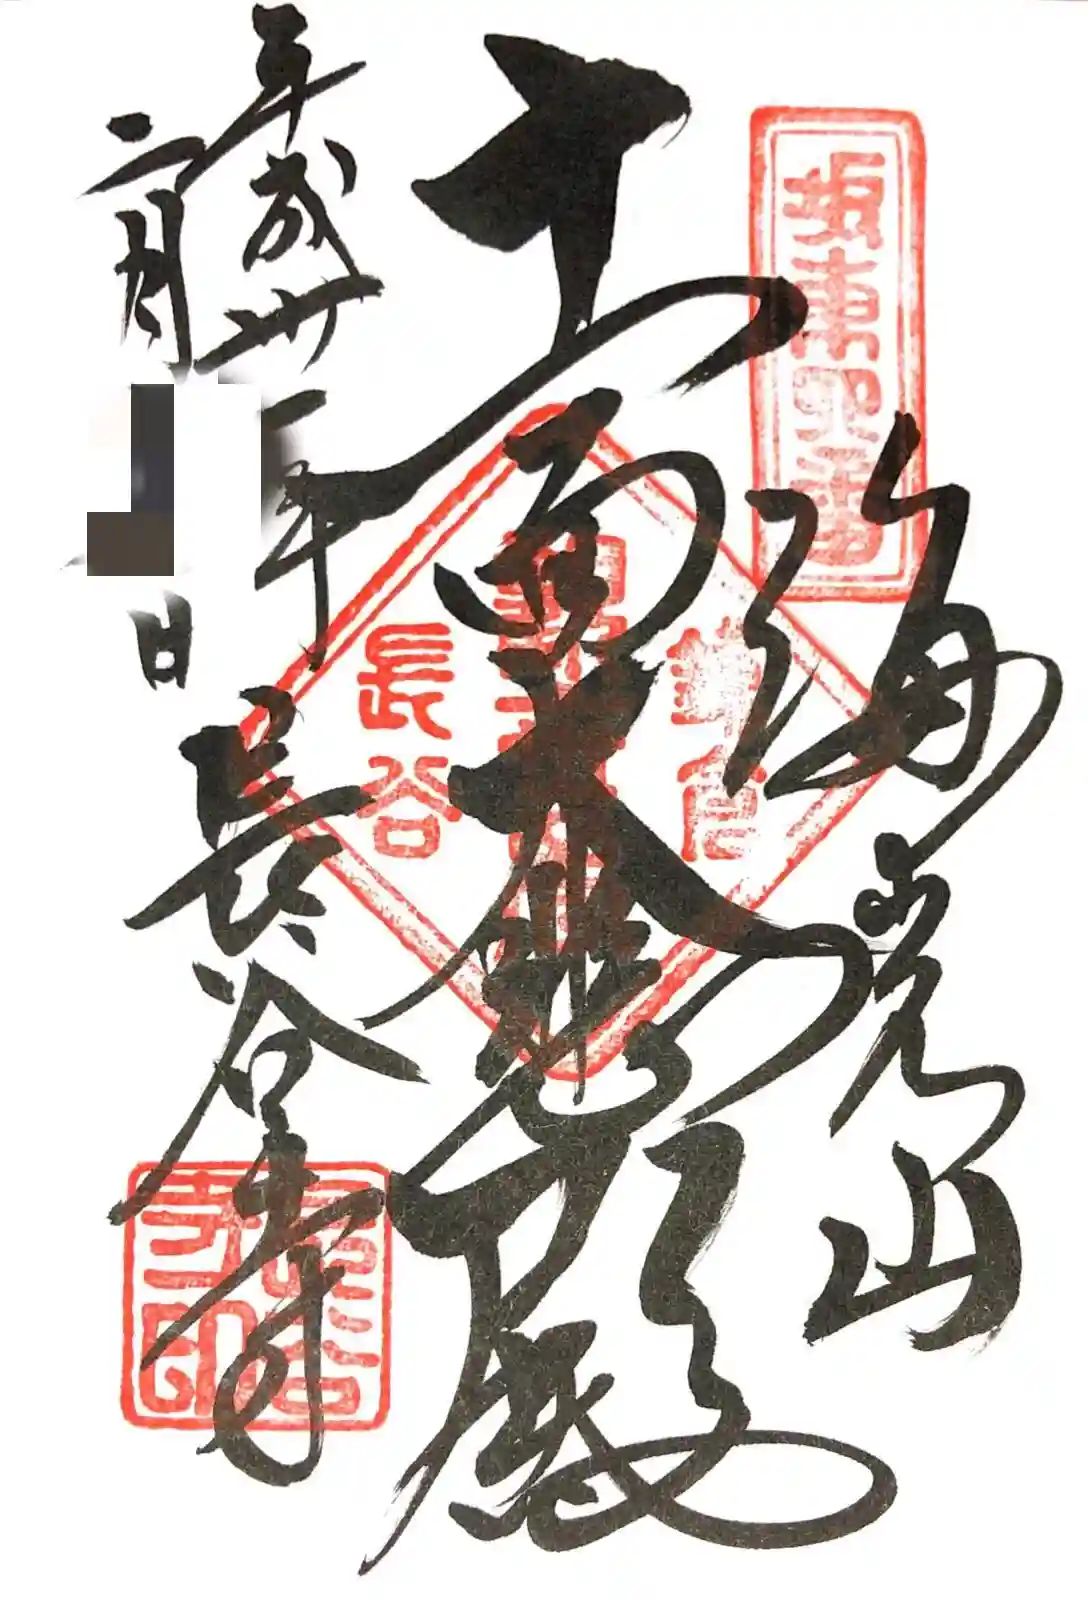 坂東四番
海光山
十一面大悲殿
鎌倉
長谷
平成卅一年
二月 日
長谷寺
長谷寺印